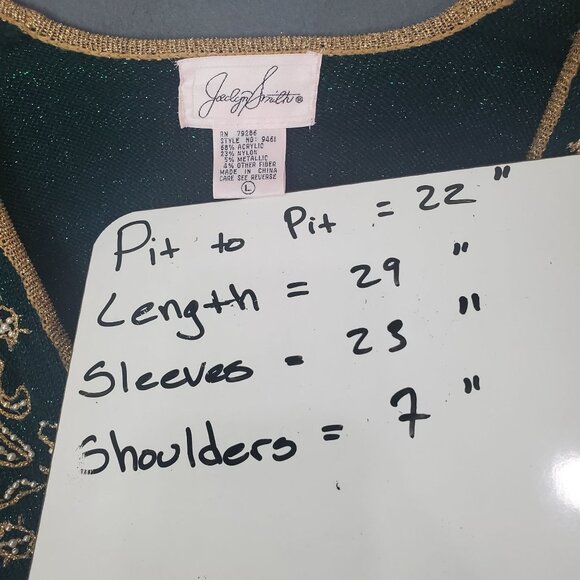 Jaclyn Smith®
RN 79286
STYLE NO: 9461
68% ACRYLIC
23% NYLON
5% METALLIC
4% OTHER FIBER
MADE IN CHINA
CARE SEE REVERSE
L
Pit to Pit = 22"
Length = 29"
Sleeves = 23"
Shoulders = 7"